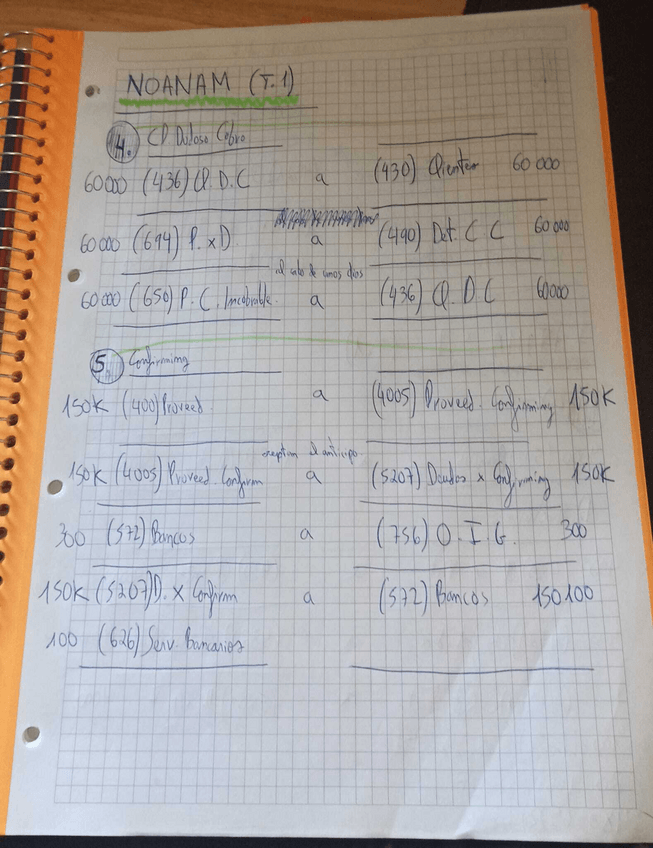 NOANAM (T.1)
4. Cl Dudoso Cobro
60000 (436) Cl. D. C a (430) Clientes 60 000
60000 (694) P. x D. a (490) Det. C C 60 000
al cabo de unos días
60000 (650) P. C. Incobrable. a (436) Cl. D C 60000
5. Confirming
150K (400) Proveed. a (4005) Proveed. Confirming 150K
el anticipo
150K (4005) Proveed. Confirm a (5207) Deudas x Confirming 150K
300 (572) Bancos a (756) O. I. G. 300
150K (5207) D. x Confirm a (572) Bancos 150100
100 (626) Serv. Bancarios